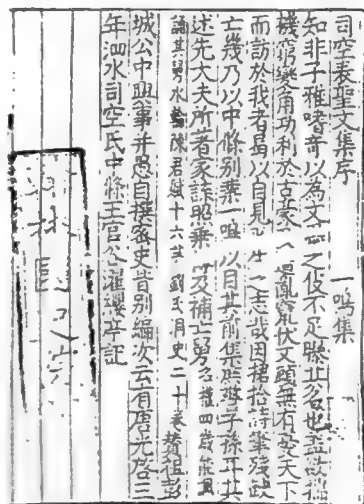 司空表聖文集序 一鳴集
知非子雅嗜奇以為文墨之伎不足曝其名也蓋欲揣
機窮變角功利於古豪及遭亂竄伏又顧無有憂天下
而訪於我者曷以自見平生之志哉因捃拾詩筆殘缺
亡幾乃以中條别業一鳴以目其前集庶警子孫耳其
述先大夫所著家諜照乘傳及補亡舅名權四歲能諷
誦其舅水鑑陳君賦十六著劉氏洞史二十卷贊祖彭
城公中興事并愚自撰密史皆别編次云有唐光啓三
年泗水司空氏中條王官谷濯纓亭記